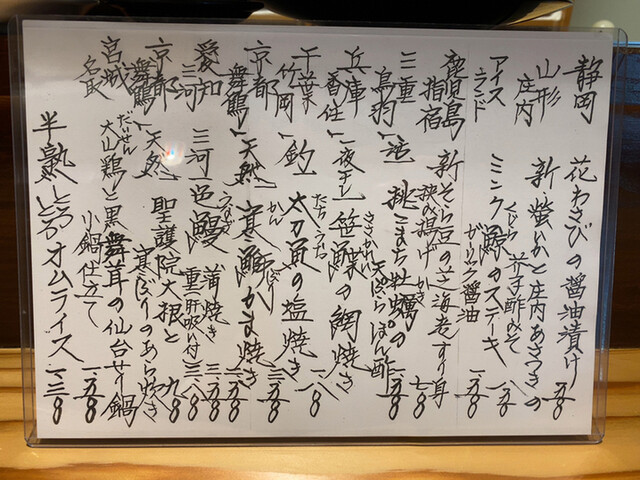 静岡 花わさびの醤油漬け
山形 庄内 新 螢いかと庄内あさつきの
芥子酢みそ
アイスランド ミンク鯨のステーキ
くじら
ガーリック醤油
鹿児島 指宿 新 そら豆の芝海老すり身
挟み揚げ 七八〇
三重 鳥羽 活 桃こまち牡蠣の
かき
天ぷらぽん酢
兵庫 香住 一夜干し 笹鰈の網焼き
ささかれい
千葉 竹岡 釣 太刀魚の塩焼き
たちうお
京都 舞鶴 天然 寒鰤かま焼き
かん ぶり
愛知 三河 三河一色鰻 蒲焼き
うなぎ
重 肝吸い付
京都 舞鶴 天然 聖護院大根と
寒ぶりのあら炊き
宮城 名取 大山鶏と黒舞茸の仙台せり鍋
だいせん
小鍋仕立て
半熟とろとろオムライス